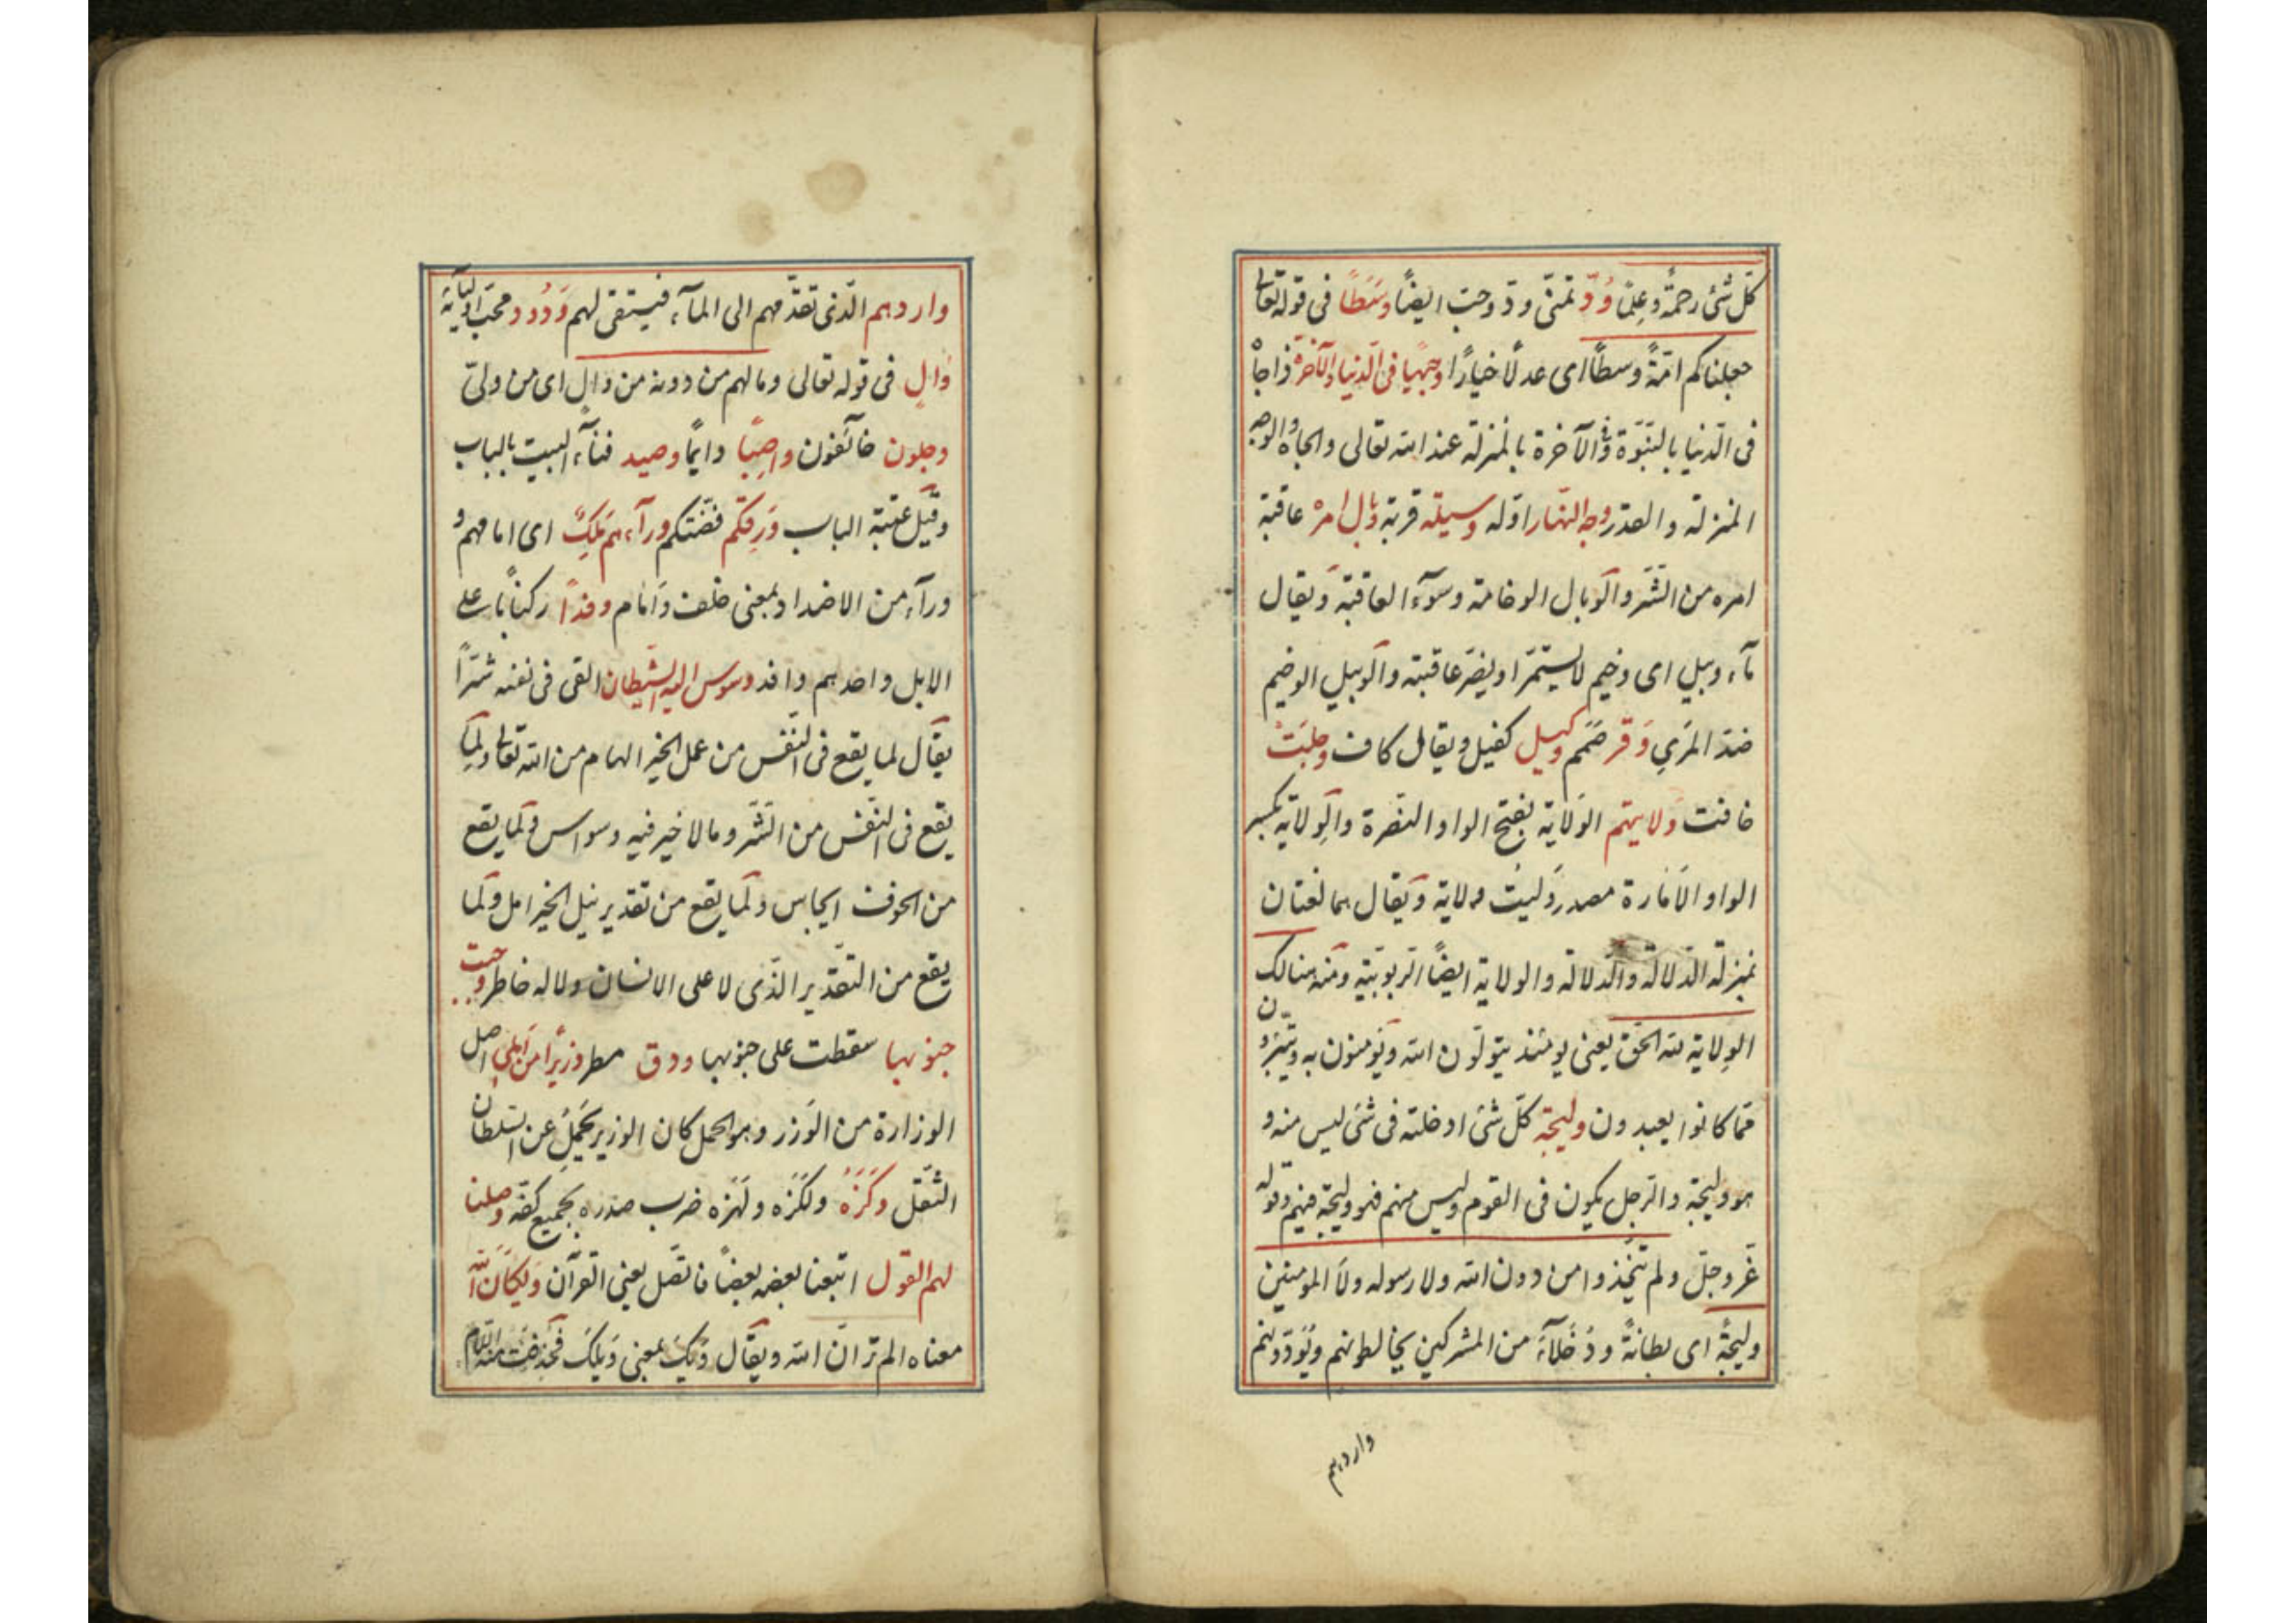 كلّ شئ رحمة وعلمًا وُدّ تمنّى وودّ وحبّ ايضًا وسَطًا فى قوله تعالى
جعلناكم امّةً وسطًا اى عدلًا خيارًا وجيهًا فى الدنيا والآخرة ذا جاهٍ
فى الدّنيا بالنبّوة وفى الآخرة بالمنزلة عند الله تعالى والجاه والوجه
المنزلة والقدر وجه النّهار اوّله وسيلة قربة وبال امره عاقبة
امره من الشّر والوبال الوخامة وسوٓء العاقبة ويقال
مآء وبيل اى وخيم لا يستمرّا ويضرّ عاقبته والوبيل الوخيم
ضدّ المرّي وَقر صَمَم وكيل كفيل ويقال كاف وجلَتْ
خافت وَلايتهم الوَلاية بفتح الواو النصّرة والوِلاية بكسر
الواو الامارة مصدر وَليتُ ولاية ويقال هما لغتان
بمنزلة الدَلالة والدِلالة والولاية ايضًا الرّبوبيّة ومنه هنالك
الوِلاية لله الحقّ يعنى يومئذ يتولّون الله ويؤمنون به ويتبرّؤن
ممّا كانوا يعبدون وليجة كلّ شئ ادخلته فى شئ ليس منه و
هو وليجة والرّجل يكون فى القوم وليس منهم فهو وليجة فيهم وقوله
عزّ وجلّ ولم يتّخذوا من دون الله ولا رسوله ولا المومنين
وليجةً اى بطانةً ودُخَلآءَ من المشركين يخالطونهم ويُوَدّونهم
واردهم
واردهم الّذى تقدّمهم الى المآء فيستقى لهم وَدُود محبّ اوليآئه
وَالٍ فى قوله تعالى وما لهم من دونه من وال اى من ولىّ
وجلون خآئفون واصِبًا دايمًا وصيد فنآء البيت بالباب
وقيل عتبة الباب وَرِقكم فضّتكم ورآءهم مَلِكٌ اى امامهم و
ورآء من الاضداد بمعنى خلف وامام وفدًا ركبانًا على
الابل واحدهم وافد وسوس اليه الشّيطان القى فى نفسه شرًّا
يقال لما يقع فى النّفس من عمل الخير الهام من الله تعالى ولما
يقع فى النّفس من الشّر وما لا خير فيه وسواس ولما يقع
من الخوف ايجاس ولما يقع من تقدير نيل الخير امل ولما
يقع من التقّدير الذّى لا على الانسان ولا له خاطر وجبت
جنوبها سقطت على جنوبها ودق مطر وزيرًا من اَهلى اصل
الوزارة من الوَزر وهو الحمل كان الوزير يحمل عن السّلطان
الثّقل وكَزَهُ ولكَزه ولهَزه ضرب صدره بجميع كفّه وصلنا
لهم القول اتبعنا بعضه بعضًا فاتّصل يعنى القرآن ويكانّ الله
معناه الم تر انّ الله ويقال وَيكَ بمعنى وَيلَك فحذفت منه اللّام